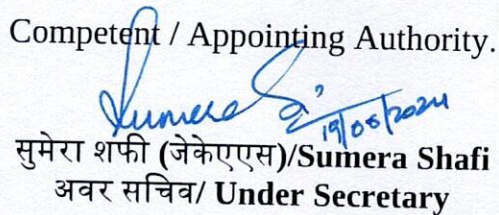 Competent / Appointing Authority.
Sumera S.
19/08/2024
सुमेरा शफी (जेकेएएस)/Sumera Shafi
अवर सचिव/ Under Secretary